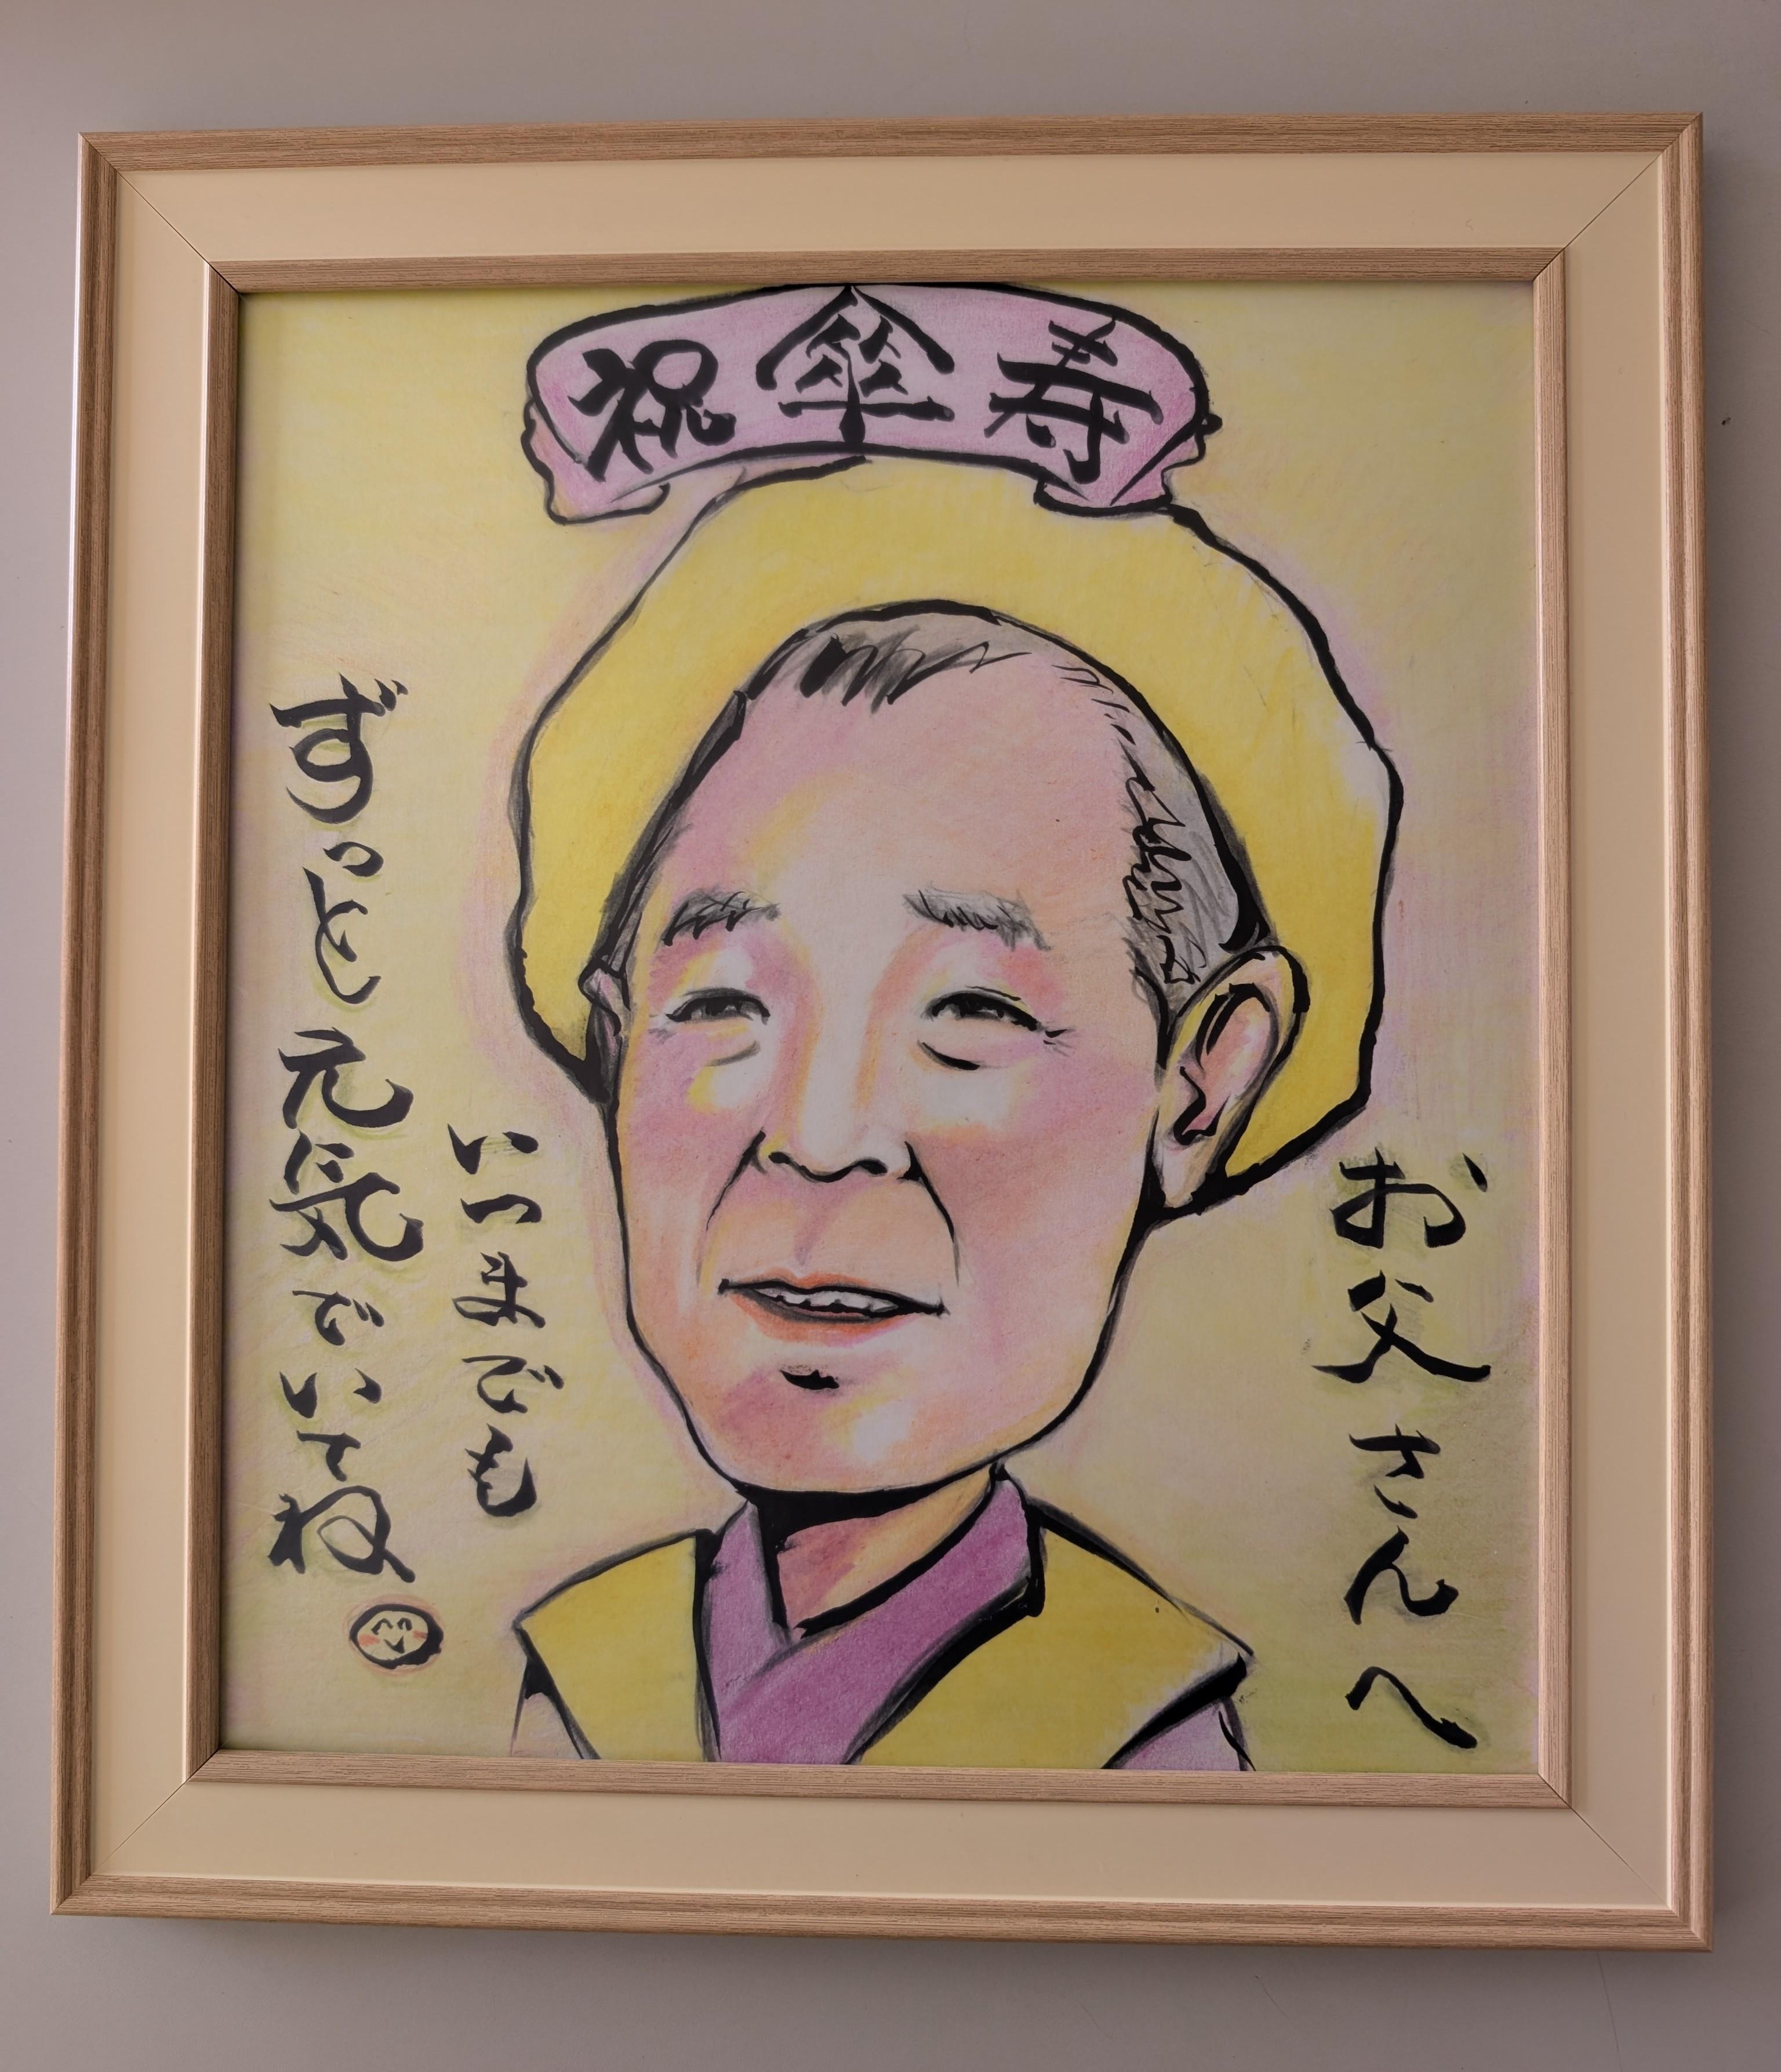 祝傘寿
お父さんへ
いつまでも
ずっと元気でいてね